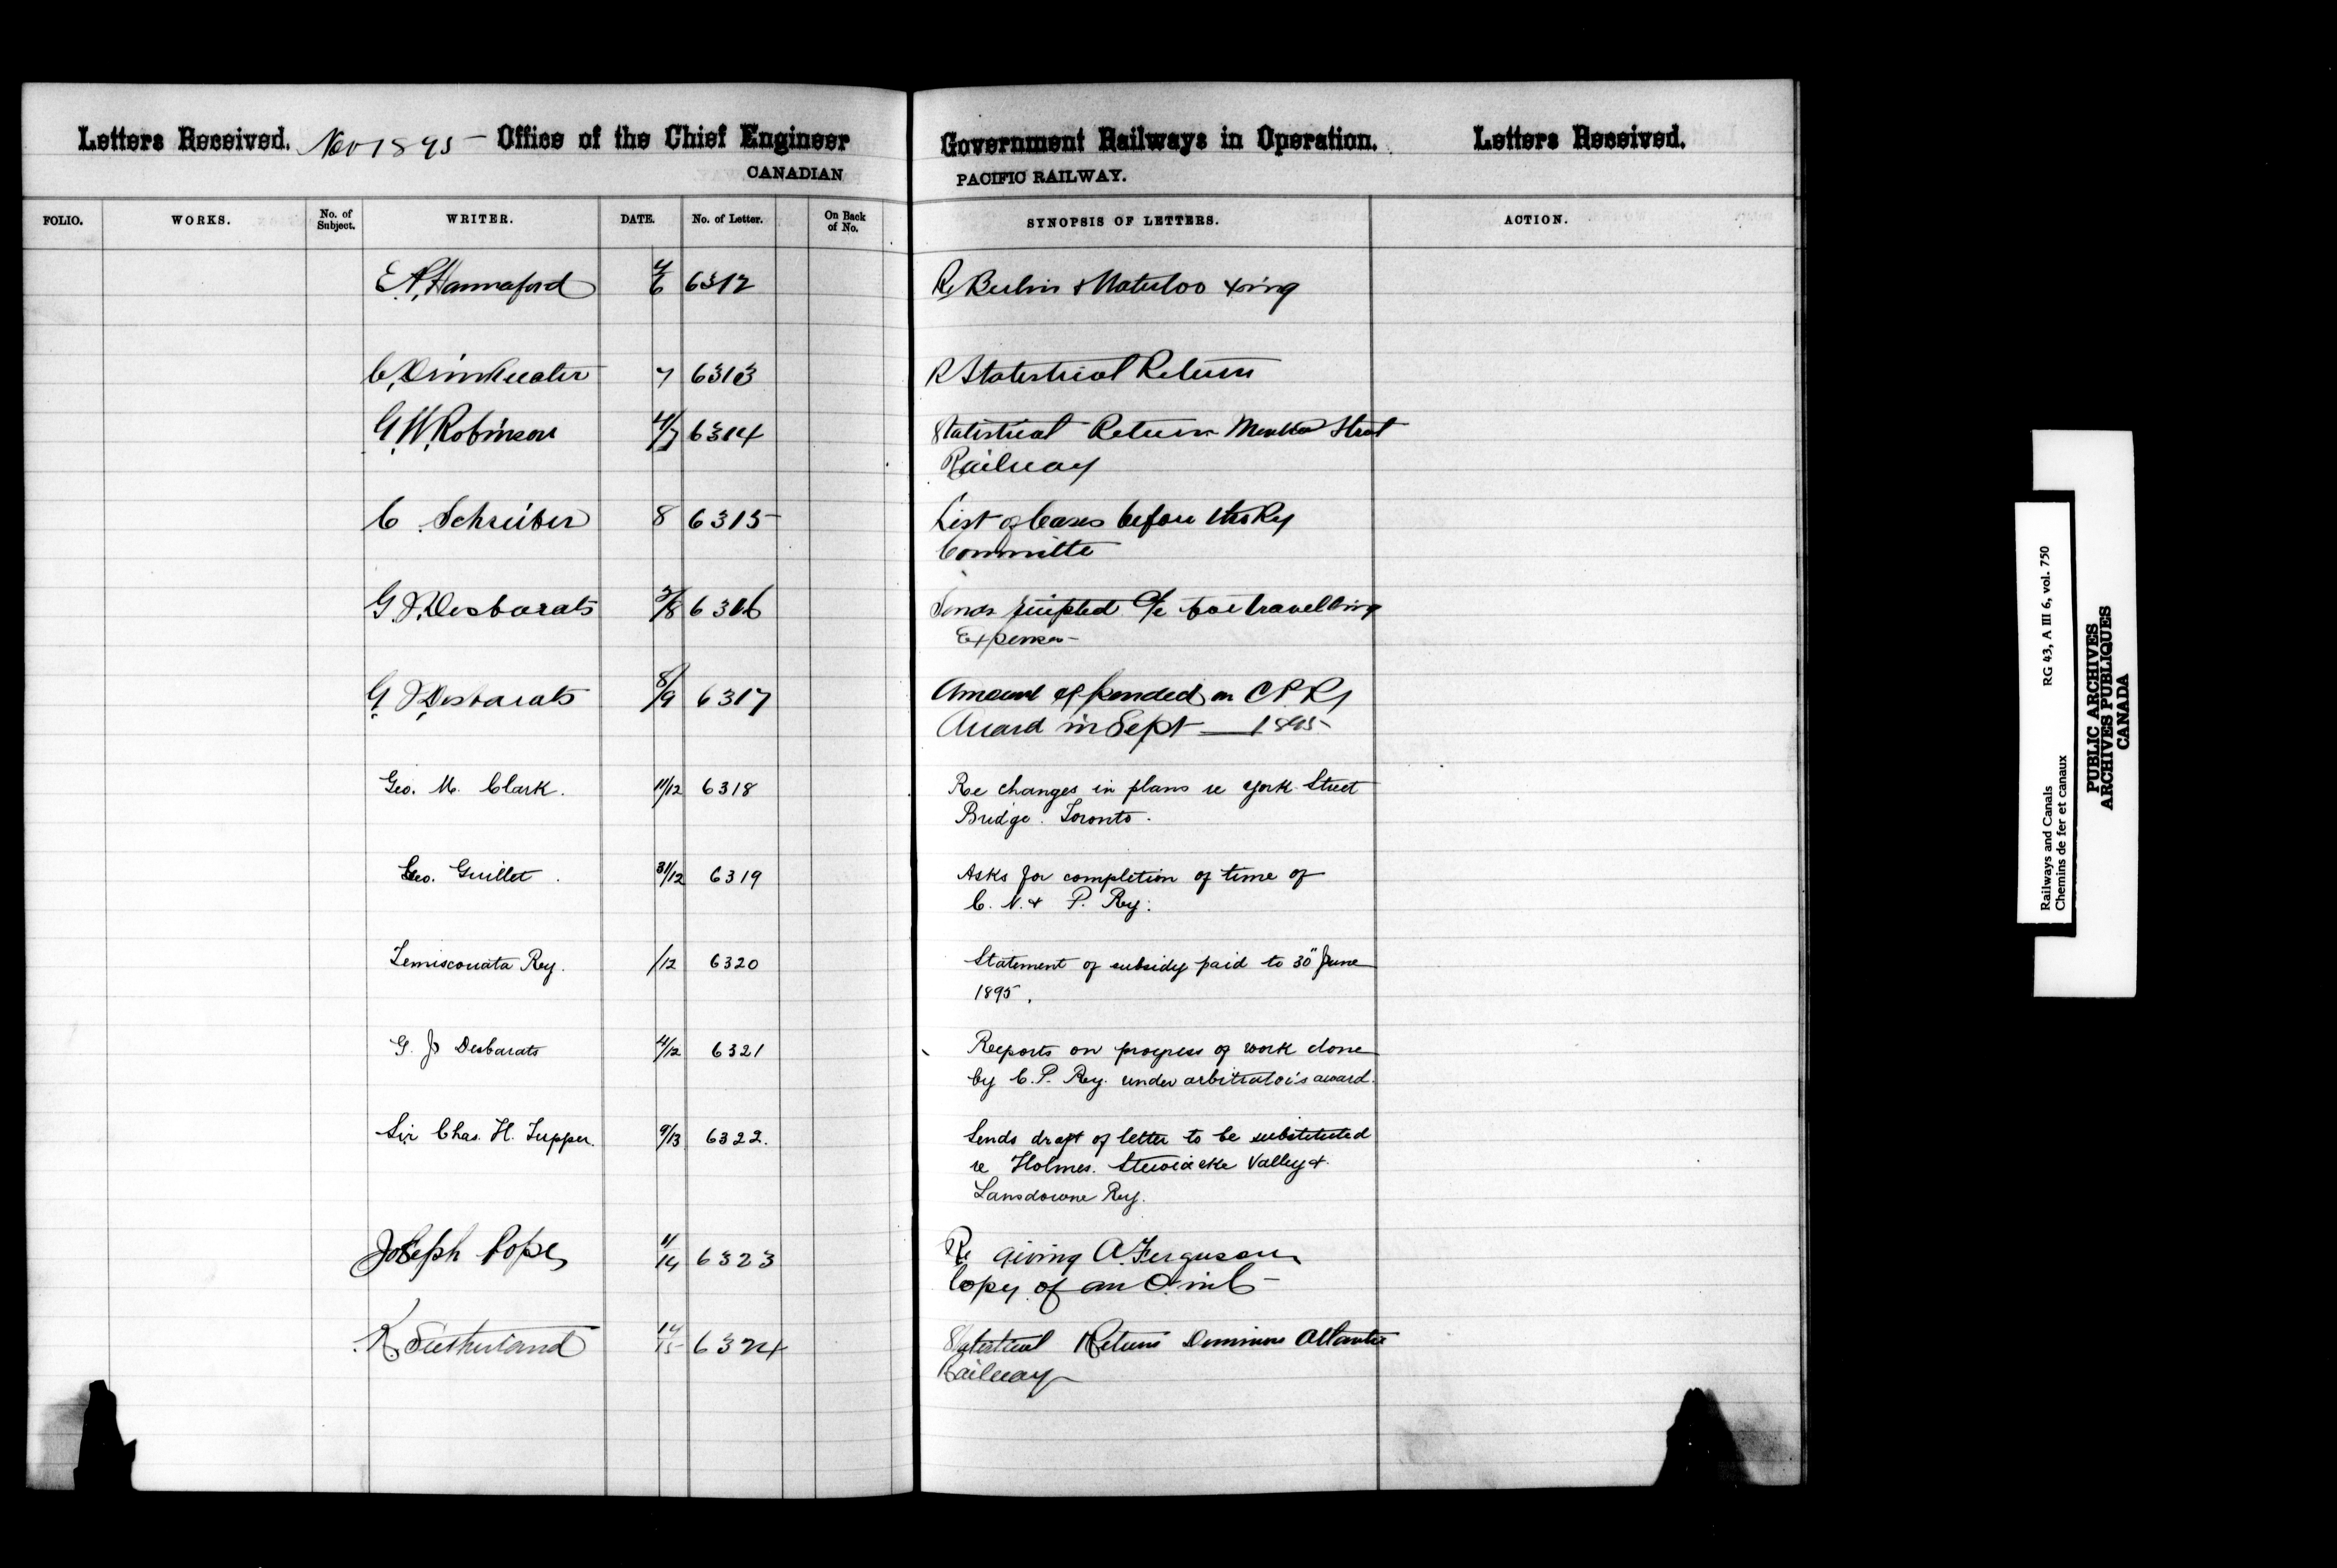 Letters Received. Nov 1895 - Office of the Chief Engineer
CANADIAN
Government Railways in Operation. Letters Received.
PACIFIC RAILWAY.
FOLIO. WORKS. No. of Subject. WRITER. DATE. No. of Letter. On Back of No. SYNOPSIS OF LETTERS. ACTION.
E.P. Hannaford 4/6 6312 Re Berlin & Waterloo xing
C. Drinkwater 7 6313 R Statistical Return
G.W. Robinson 4/7 6314 Statistical Return Street
Railway
C. Schreiber 8 6315 List of Cases before the Ry
Committe
G.J. Desbarats 3/8 6316 Sends a/c for travelling
Expenses-
G.J. Desbarats 8/9 6317 Amount expended on C.P.Ry
Award in Sept - 1895
Geo. M. Clark. 11/12 6318 Re changes in plans re York Street
Bridge. Toronto.
Geo. Guillet. 31/12 6319 Asks for completion of time of
C. N. & P. Ry.
Temiscouata Ry. /12 6320 Statement of subsidy paid to 30" June
1895.
G. J. Desbarats 4/12 6321 Reports on progress of work done
by C.P. Ry. under arbitrator's award.
Sir Chas. H. Tupper. 9/13 6322. Sends draft of letter to be substituted
re Holmes. Stewiacke Valley &
Lansdowne Ry.
Joseph Pope 11/14 6323 Re giving A. Ferguson
Copy of an O. in C-
K. Sutherland 14/15 6324 Statistical Return Dominion Atlantic
Railway
Railways and Canals RG 43, A III 6, vol. 750
Chemins de fer et canaux
PUBLIC ARCHIVES
ARCHIVES PUBLIQUES
CANADA